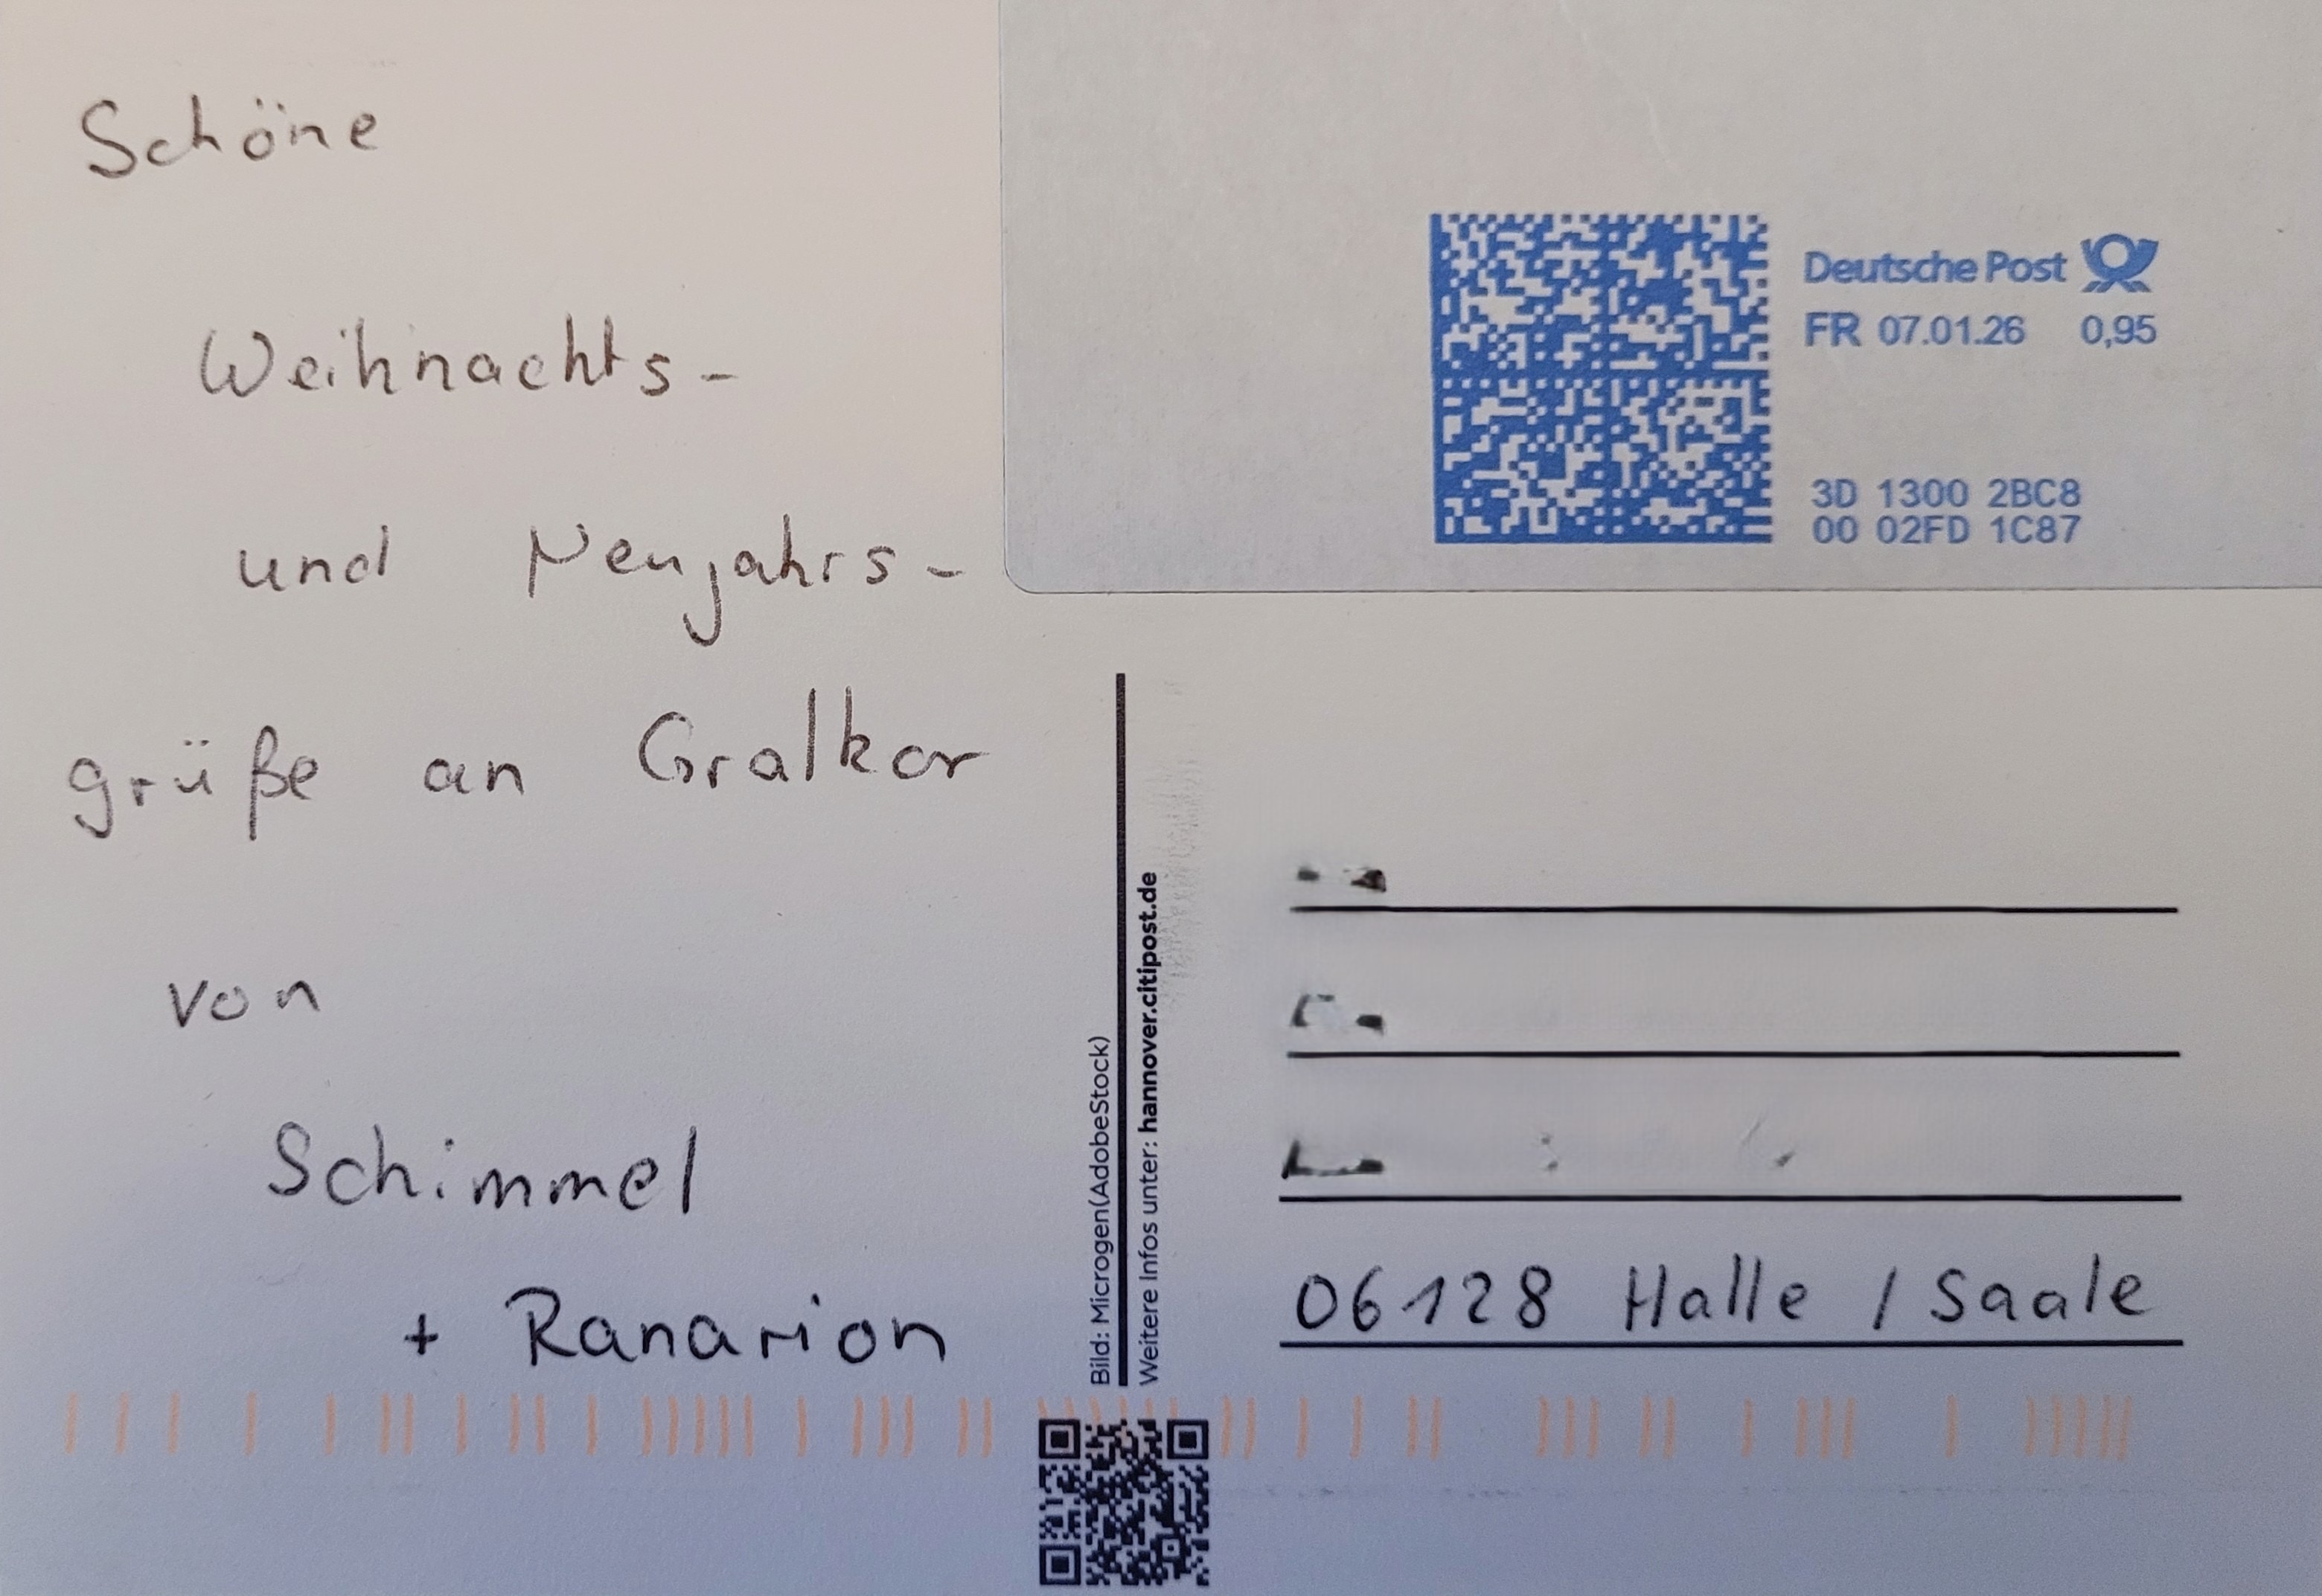 Schöne
Weihnachts-
und Neujahrs-
grüße an Gralkor
von
Schimmel
+ Ranarion
Deutsche Post
FR 07.01.26 0,95
3D 1300 2BC8
00 02FD 1C87
Bild: Microgen(AdobeStock)
Weitere Infos unter: hannover.citipost.de
06128 Halle / Saale